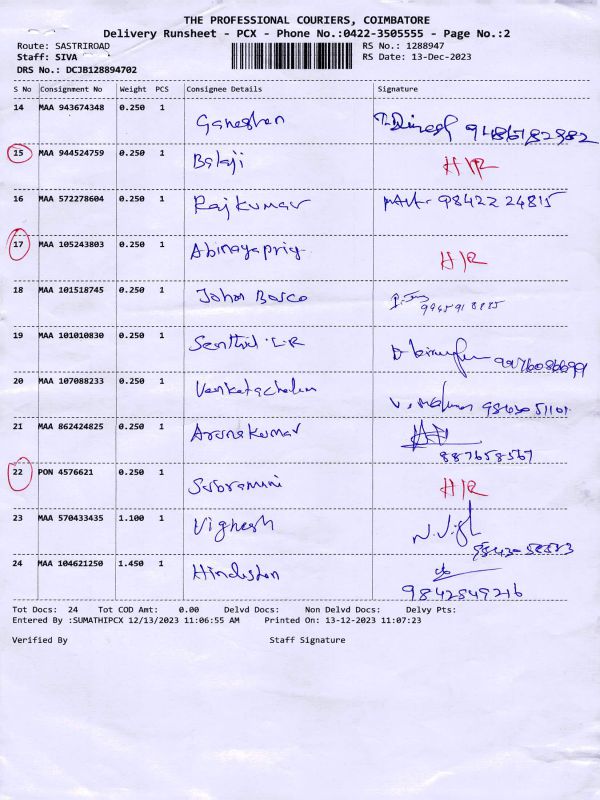 THE PROFESSIONAL COURIERS, COIMBATORE
Delivery Runsheet - PCX - Phone No.:0422-3505555 - Page No.:2
Route: SASTRIROAD RS No.: 1288947
Staff: SIVA RS Date: 13-Dec-2023
DRS No.: DCJB128894702
S No Consignment No Weight PCS Consignee Details Signature
14 MAA 943674348 0.250 1 Ganeshan
15 MAA 944524759 0.250 1 Balaji H/R
16 MAA 572278604 0.250 1 Rajkumar 98422 24815
17 MAA 105243803 0.250 1 Abinayapriy H/R
18 MAA 101518745 0.250 1 John Bosco
19 MAA 101010830 0.250 1 Senthil
20 MAA 107088233 0.250 1 Venkatachalam
21 MAA 862424825 0.250 1 Arunakumar
887658567
22 PON 4576621 0.250 1 Subramini H/R
23 MAA 570433435 1.100 1 Vighesh
24 MAA 104621250 1.450 1 Hindustan
9842549216
Tot Docs: 24 Tot COD Amt: 0.00 Delvd Docs: Non Delvd Docs: Delvy Pts:
Entered By :SUMATHIPCX 12/13/2023 11:06:55 AM Printed On: 13-12-2023 11:07:23
Verified By Staff Signature